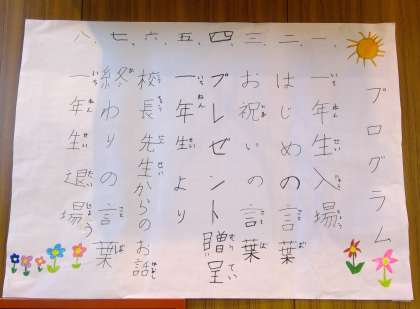 プログラム
一、一年生入場
二、はじめの言葉
三、お祝いの言葉
四、プレゼント贈呈
五、一年生より
六、校長先生からのお話
七、終わりの言葉
八、一年生退場